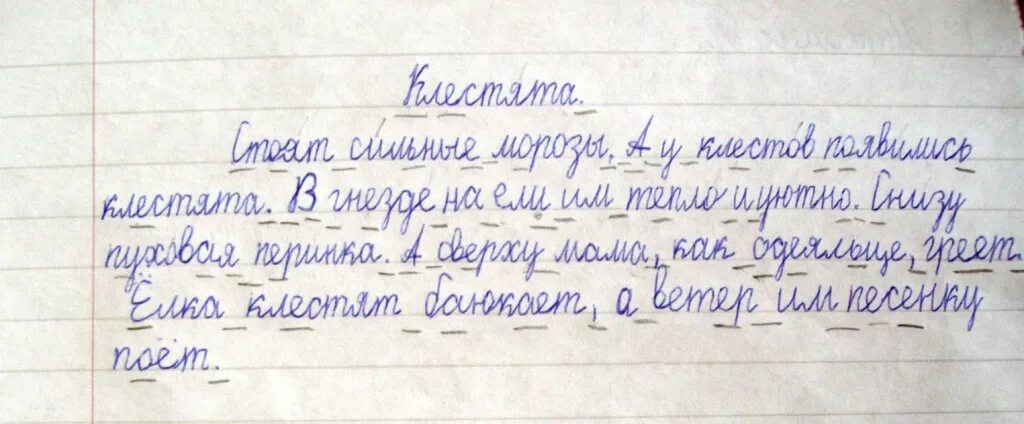 Клестята.
Стоят сильные морозы. А у клестов появились
клестята. В гнезде на ели им тепло и уютно. Снизу
пуховая перинка. А сверху мама, как одеяльце, греет.
Ёлка клестят баюкает, а ветер им песенку
поёт.